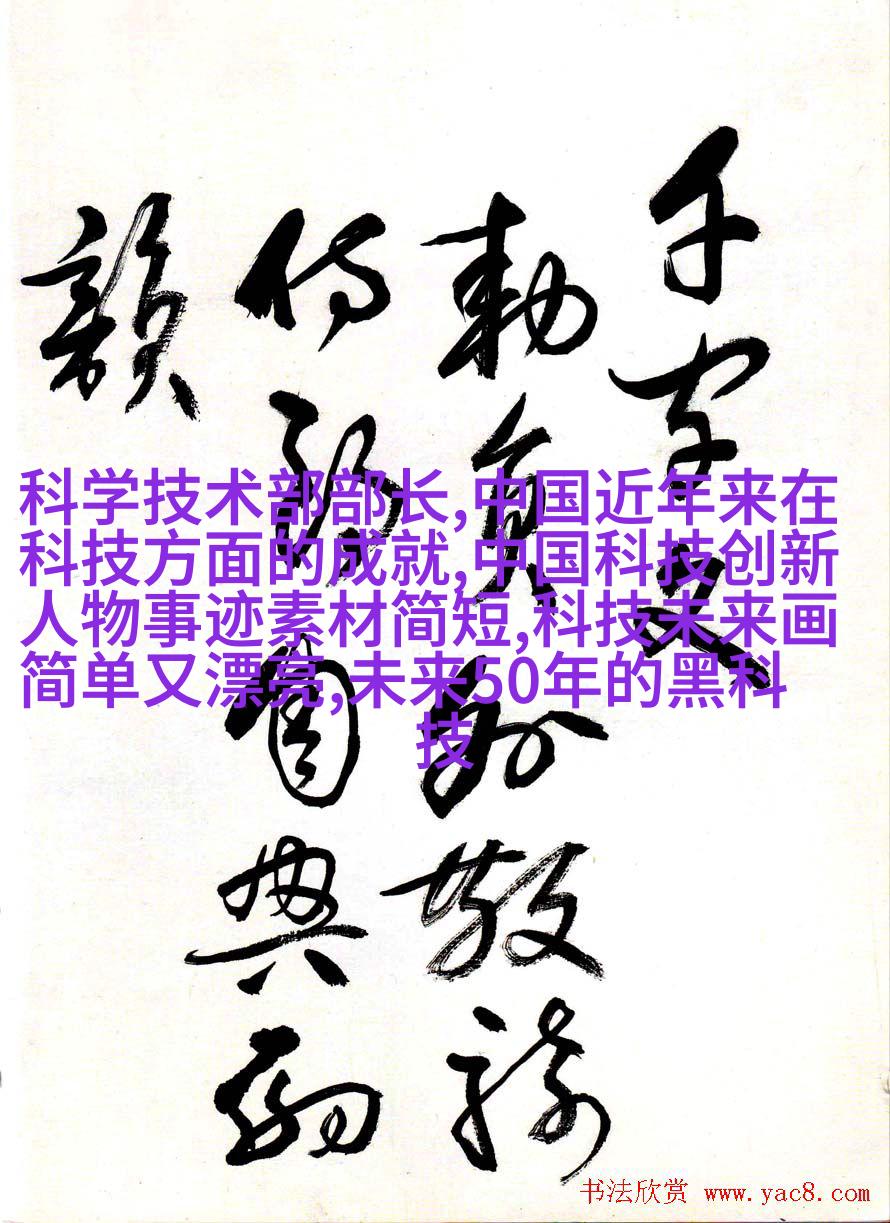 千字文
勅員外散騎
侍郎周興嗣
韻
科学技术部部长,中国近年来在
科技方面的成就,中国科技创新
人物事迹素材简短,科技未来画
简单又漂亮,未来50年的黑科
技
书法欣赏 www.yac8.com